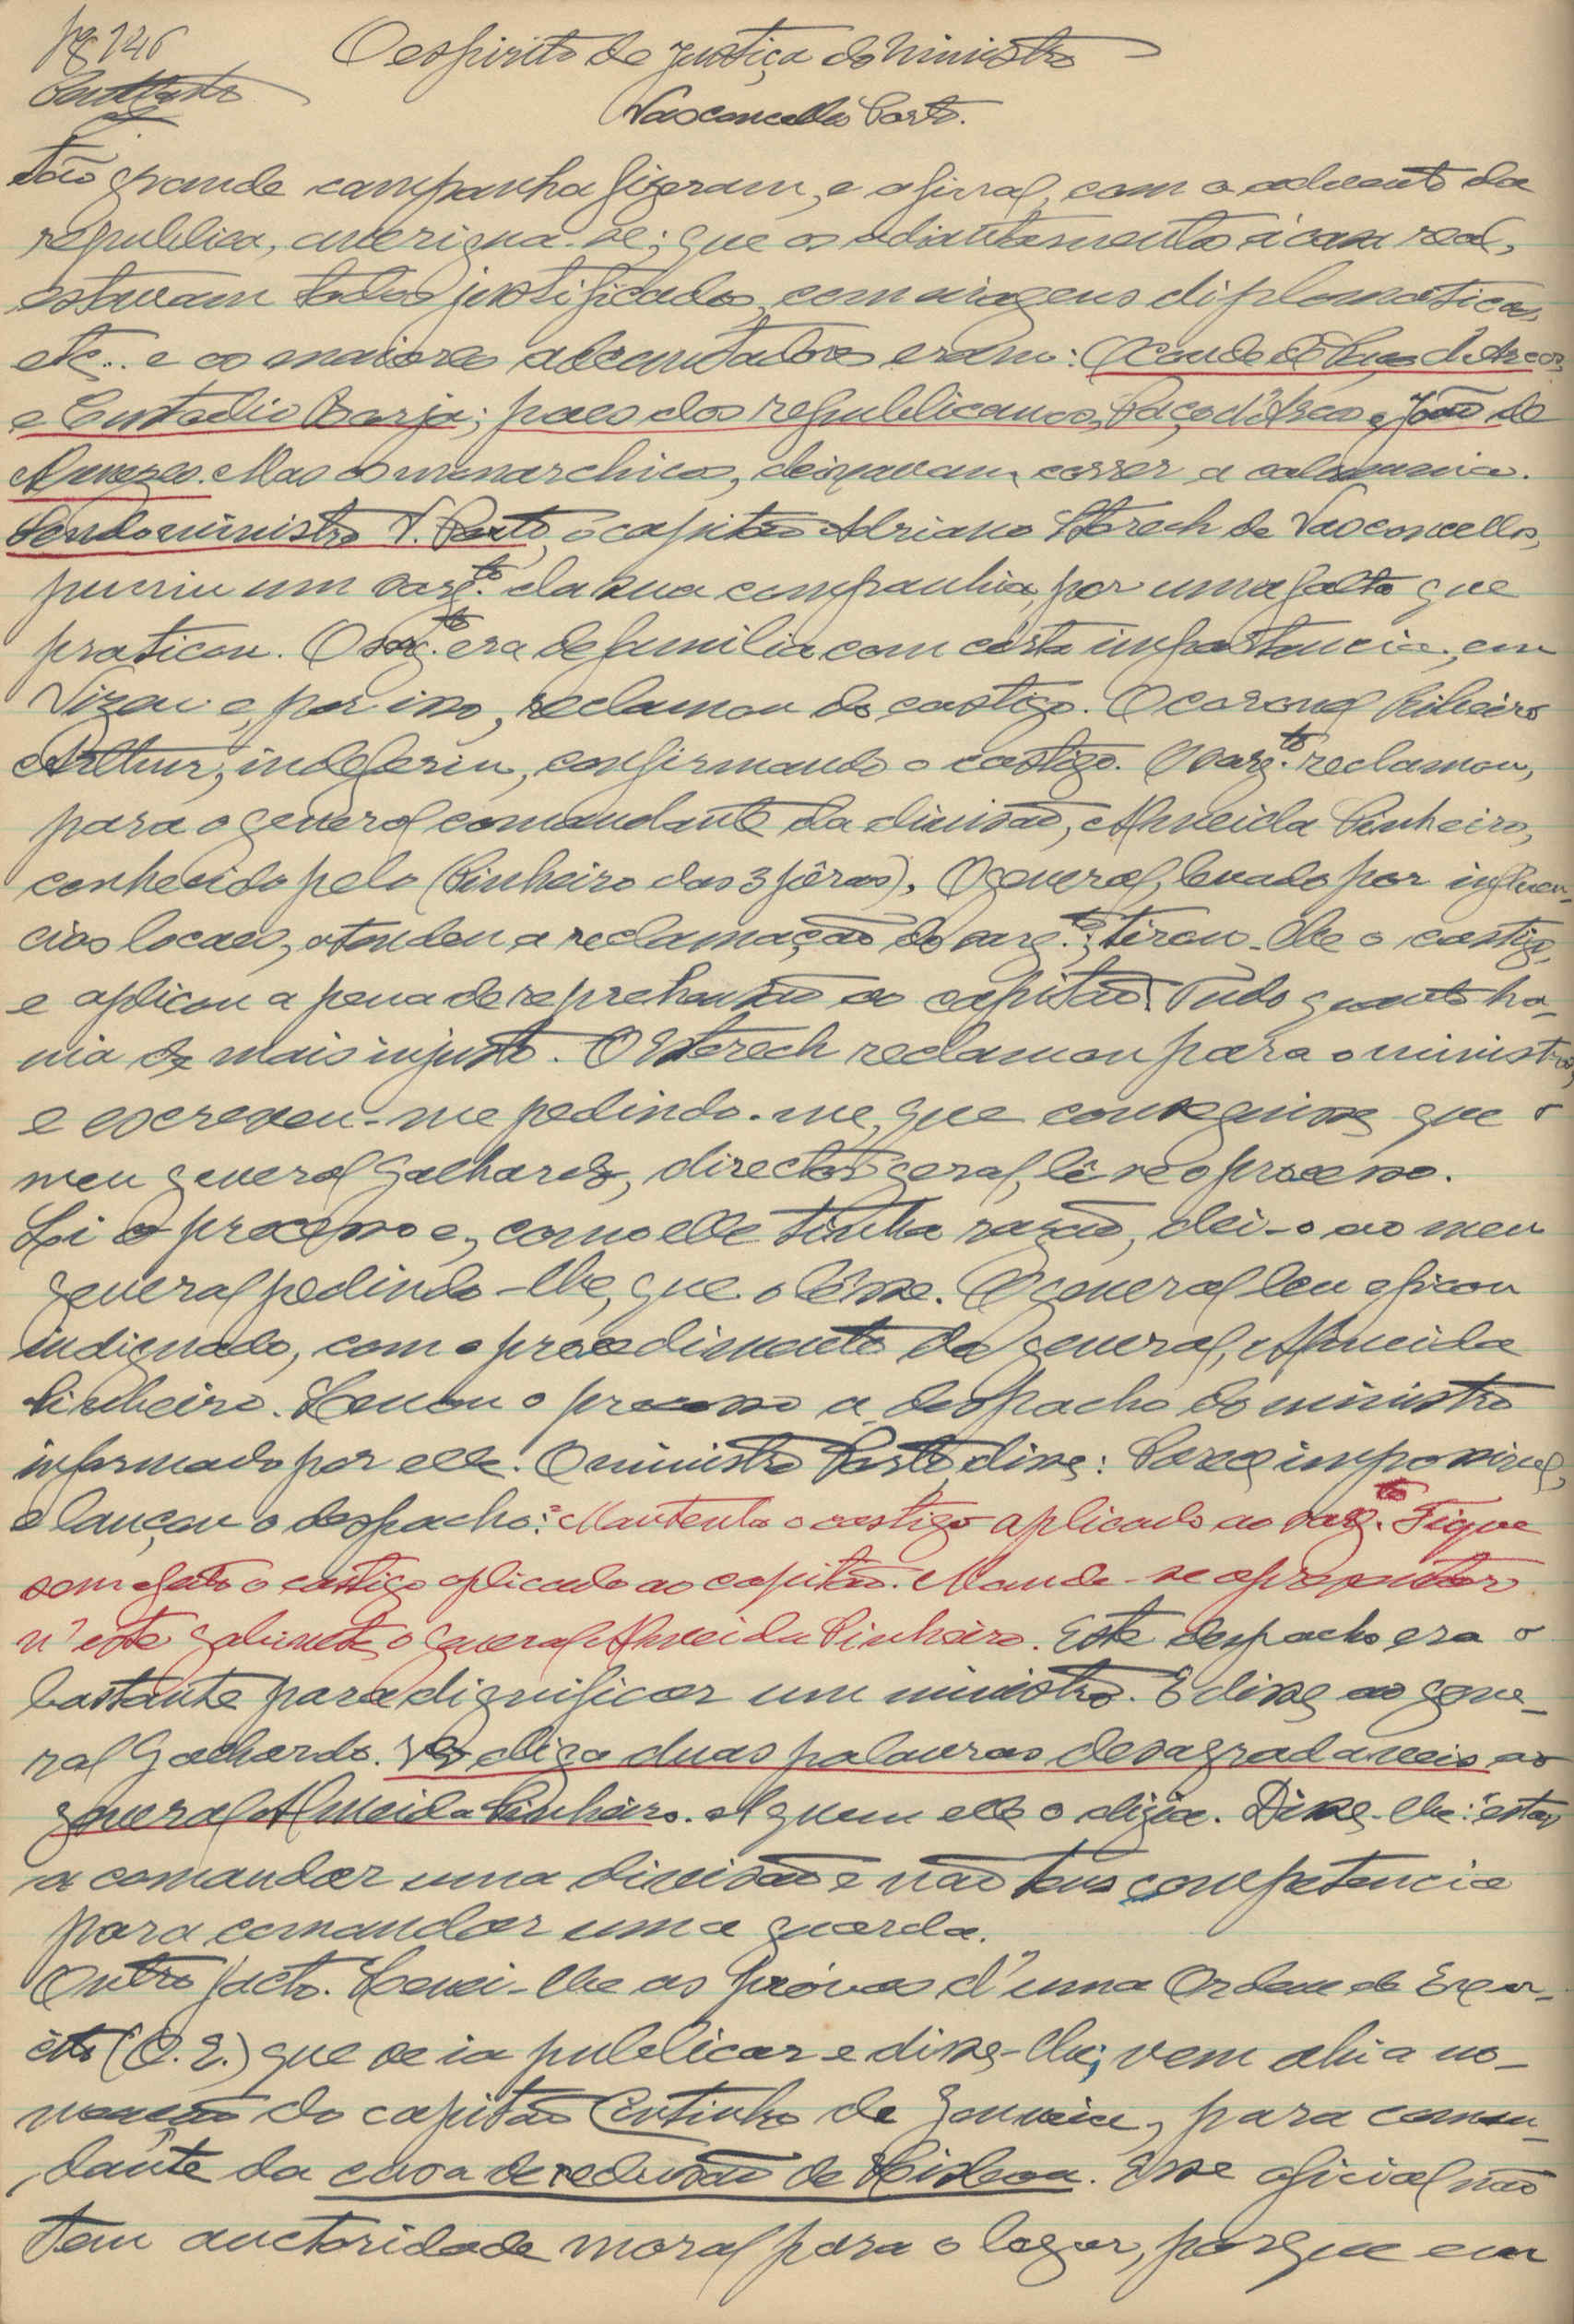 pg 246
O espirito de justiça do Ministro
Vasconcellos Porto.
tão grande campanha fizeram, e afinal, com o advento da
republica, averigua-se; que os adiantamentos á casa real,
estavam todos justificados, com viagens diplomaticas,
etc.. e os maiores adeantadores eram: O conde de Paço d'Arcos,
e Custodio Borja; paes dos republicanos, Paço d'Arcos e João de
Menezes. Mas os monarchicos, deixavam correr a calumnia.
Sendo ministro V. Porto, o capitão Adriano Strech de Vasconcellos,
puniu um sarg.to da sua companhia, por uma falta que
praticou. O sarg.to era de familia com certa importancia, em
Vizeu e, por isso, reclamou do castigo. O coronel Ribeiro
Arthur, indeferiu, confirmando o castigo. O sarg.to reclamou,
para o general comandante da divisão, Almeida Pinheiro,
conhecido pelo (Pinheiro das 3 pêras). O general, levado por influen-
cias locaes, atendeu a reclamação do sarg.to; tirou-lhe o castigo,
e aplicou a pena de reprehensão ao capitão. Tudo quanto ha-
via de mais injusto. O Strech reclamou para o ministro,
e escreveu-me pedindo-me, que conseguisse que o
meu general Galhardo, director geral, lêsse o processo.
Li o processo e, como elle tinha razão, dei-o ao meu
general pedindo-lhe, que o lêsse. O general leu e ficou
indignado, com o procedimento do general, Almeida
Pinheiro. Levou o processo a despacho do ministro
informado por elle. O ministro Porto, disse: Parece impossivel,
e lançou o despacho: "Mantenho o castigo aplicado ao sarg.to Fique
sem efeito o castigo aplicado ao capitão. Mande-se apresentar
n'este gabinete, o general Almeida Pinheiro. Este despacho era o
bastante para dignificar um ministro. E disse ao gene-
ral Galhardo. diga duas palavras desagradaveis ao
general Almeida Pinheiro. A quem elle o dizia. Disse-lhe: "estás
a comandar uma divisão e não tens competencia
para comandar uma guarda.
Outro facto. Levei-lhe as próvas d'uma Ordem do Exer-
cito (O. E.) que se ia publicar e disse-lhe; vem ahi a no-
meação do capitão Coutinho de Gouveia, para coman-
dante da casa de reclusão de Lisboa. Esse oficial não
tem auctoridade moral para o logar, porque em